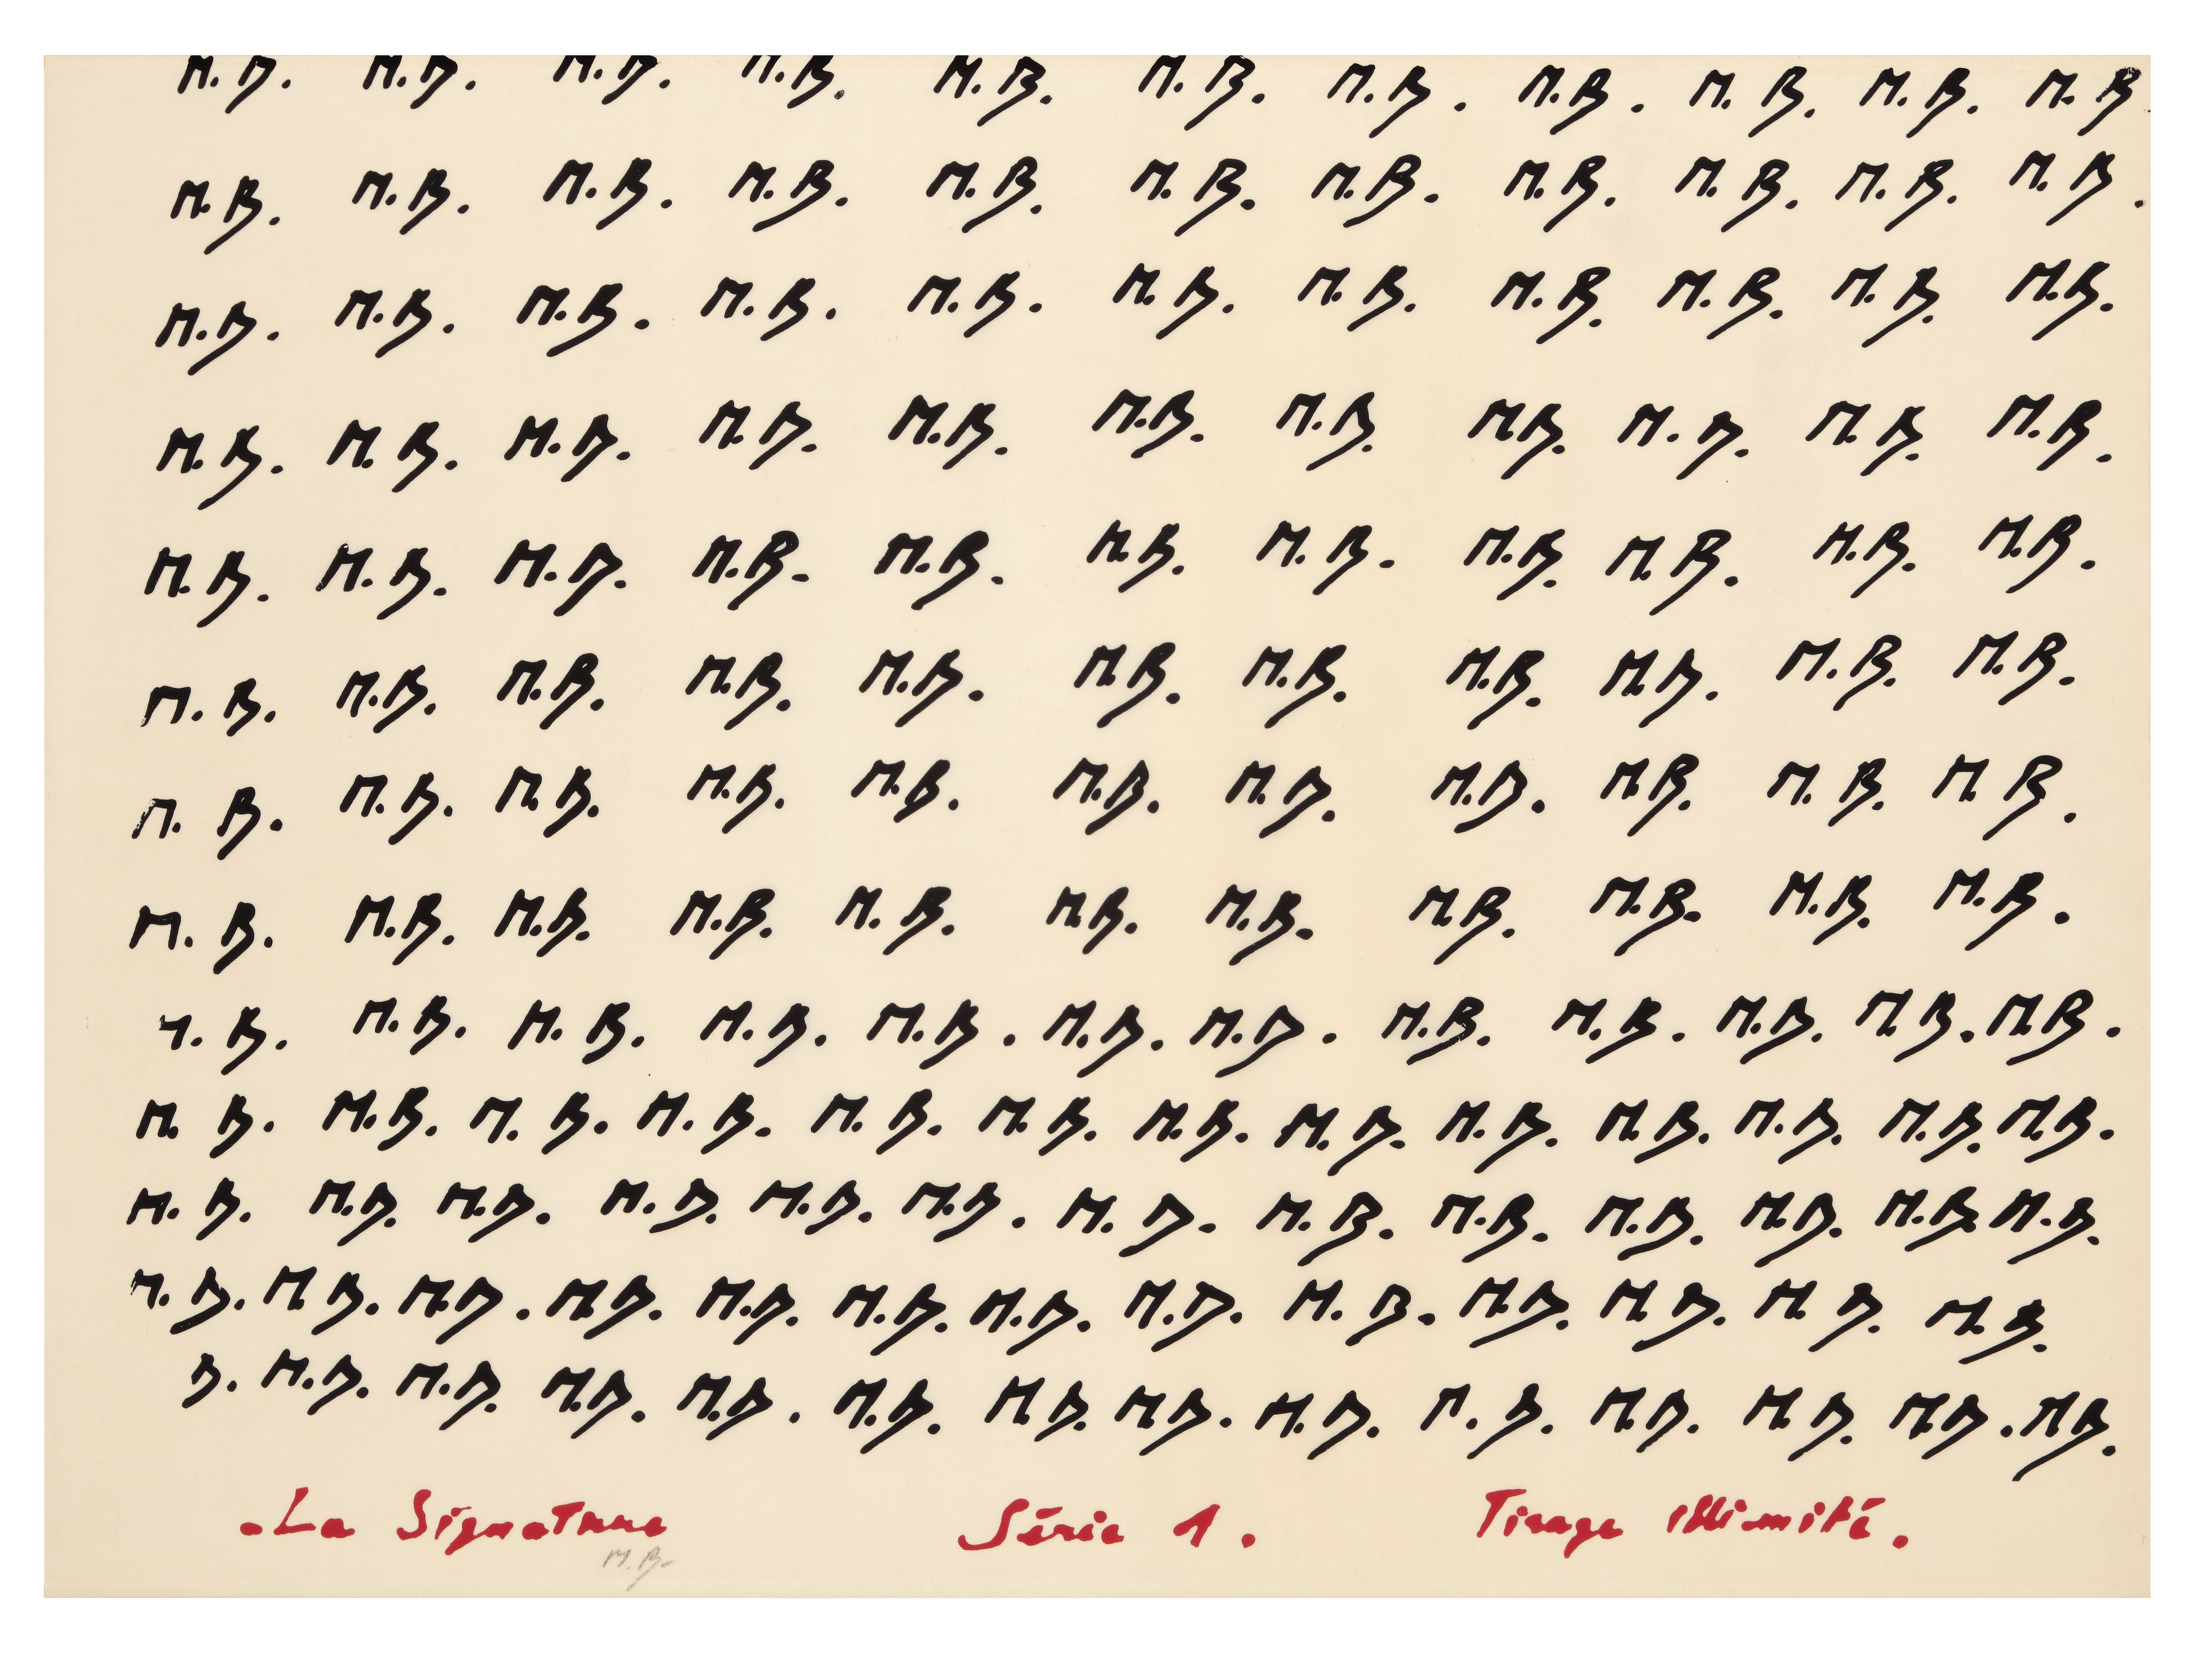 M.B. M.B. M.B. M.B. M.B. M.B. M.B. M.B. M.B. M.B. M.B.
M.B. M.B. M.B. M.B. M.B. M.B. M.B. M.B. M.B. M.B. M.B.
M.B. M.B. M.B. M.B. M.B. M.B. M.B. M.B. M.B. M.B. M.B.
M.B. M.B. M.B. M.B. M.B. M.B. M.B. M.B. M.B. M.B. M.B.
M.B. M.B. M.B. M.B. M.B. M.B. M.B. M.B. M.B. M.B. M.B.
M.B. M.B. M.B. M.B. M.B. M.B. M.B. M.B. M.B. M.B. M.B.
M.B. M.B. M.B. M.B. M.B. M.B. M.B. M.B. M.B. M.B. M.B.
M.B. M.B. M.B. M.B. M.B. M.B. M.B. M.B. M.B. M.B. M.B.
M.B. M.B. M.B. M.B. M.B. M.B. M.B. M.B. M.B. M.B. M.B. M.B.
M.B. M.B. M.B. M.B. M.B. M.B. M.B. M.B. M.B. M.B. M.B. M.B. M.B.
M.B. M.B. M.B. M.B. M.B. M.B. M.B. M.B. M.B. M.B. M.B. M.B. M.B.
M.B. M.B. M.B. M.B. M.B. M.B. M.B. M.B. M.B. M.B. M.B. M.B. M.B.
B. M.B. M.B. M.B. M.B. M.B. M.B. M.B. M.B. M.B. M.B. M.B. M.B. M.B.
-La Signature Série 1. Tirage illimité.
M.B.